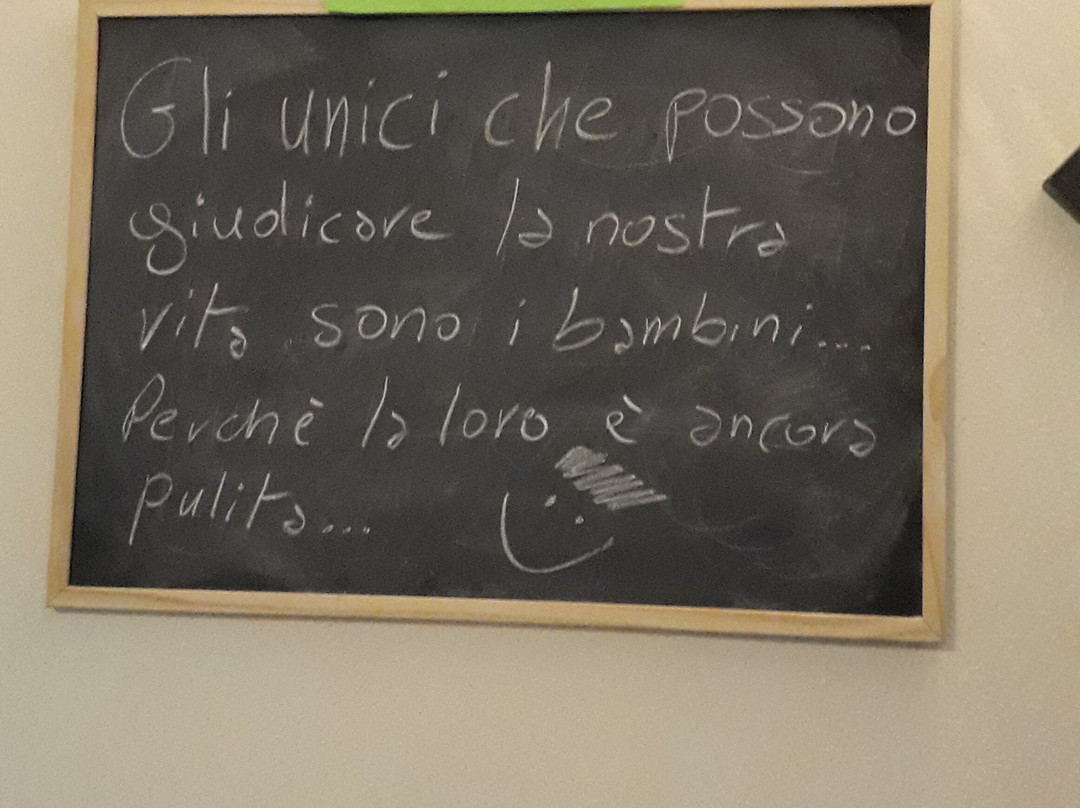 Gli unici che possono
giudicare la nostra
vita sono i bambini...
Perchè la loro è ancora
pulita...